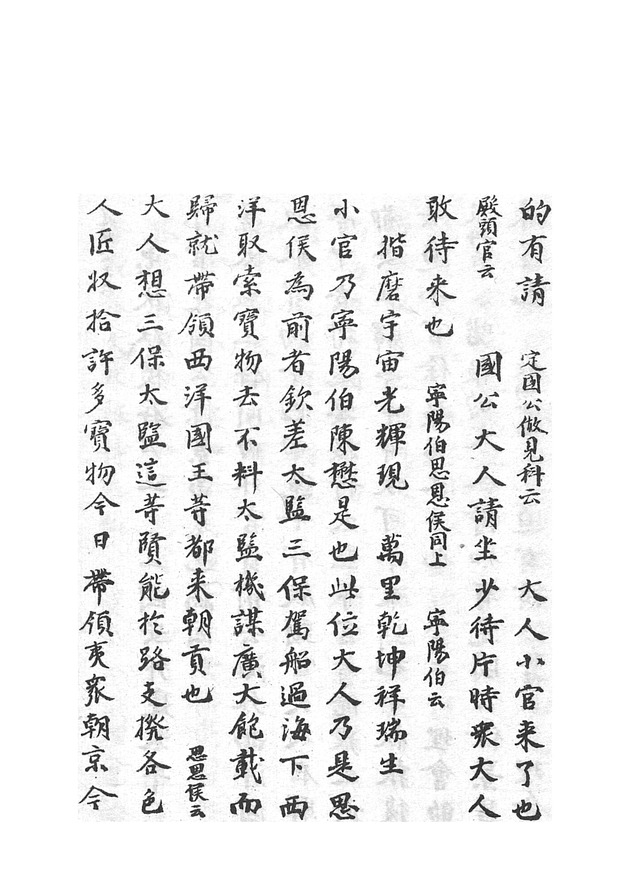 的有請　定國公做見科云　大人小官来了也
殿頭官云　國公大人請坐少待片時衆大人
敢待来也　寧陽伯思恩侯同上　寧陽伯云
揩磨宇宙光輝現　萬里乾坤祥瑞生
小官乃寧陽伯陳懋是也此位大人乃是思
恩侯為前者欽差太監三保駕船過海下西
洋取索寳物去不料太監機謀廣大飽載而
歸就帶領西洋國王䓁都来朝貢也　思恩侯云
大人想三保太監這䓁賢能於路支撥各色
人匠収拾許多寳物今日帶領夷衆朝京今